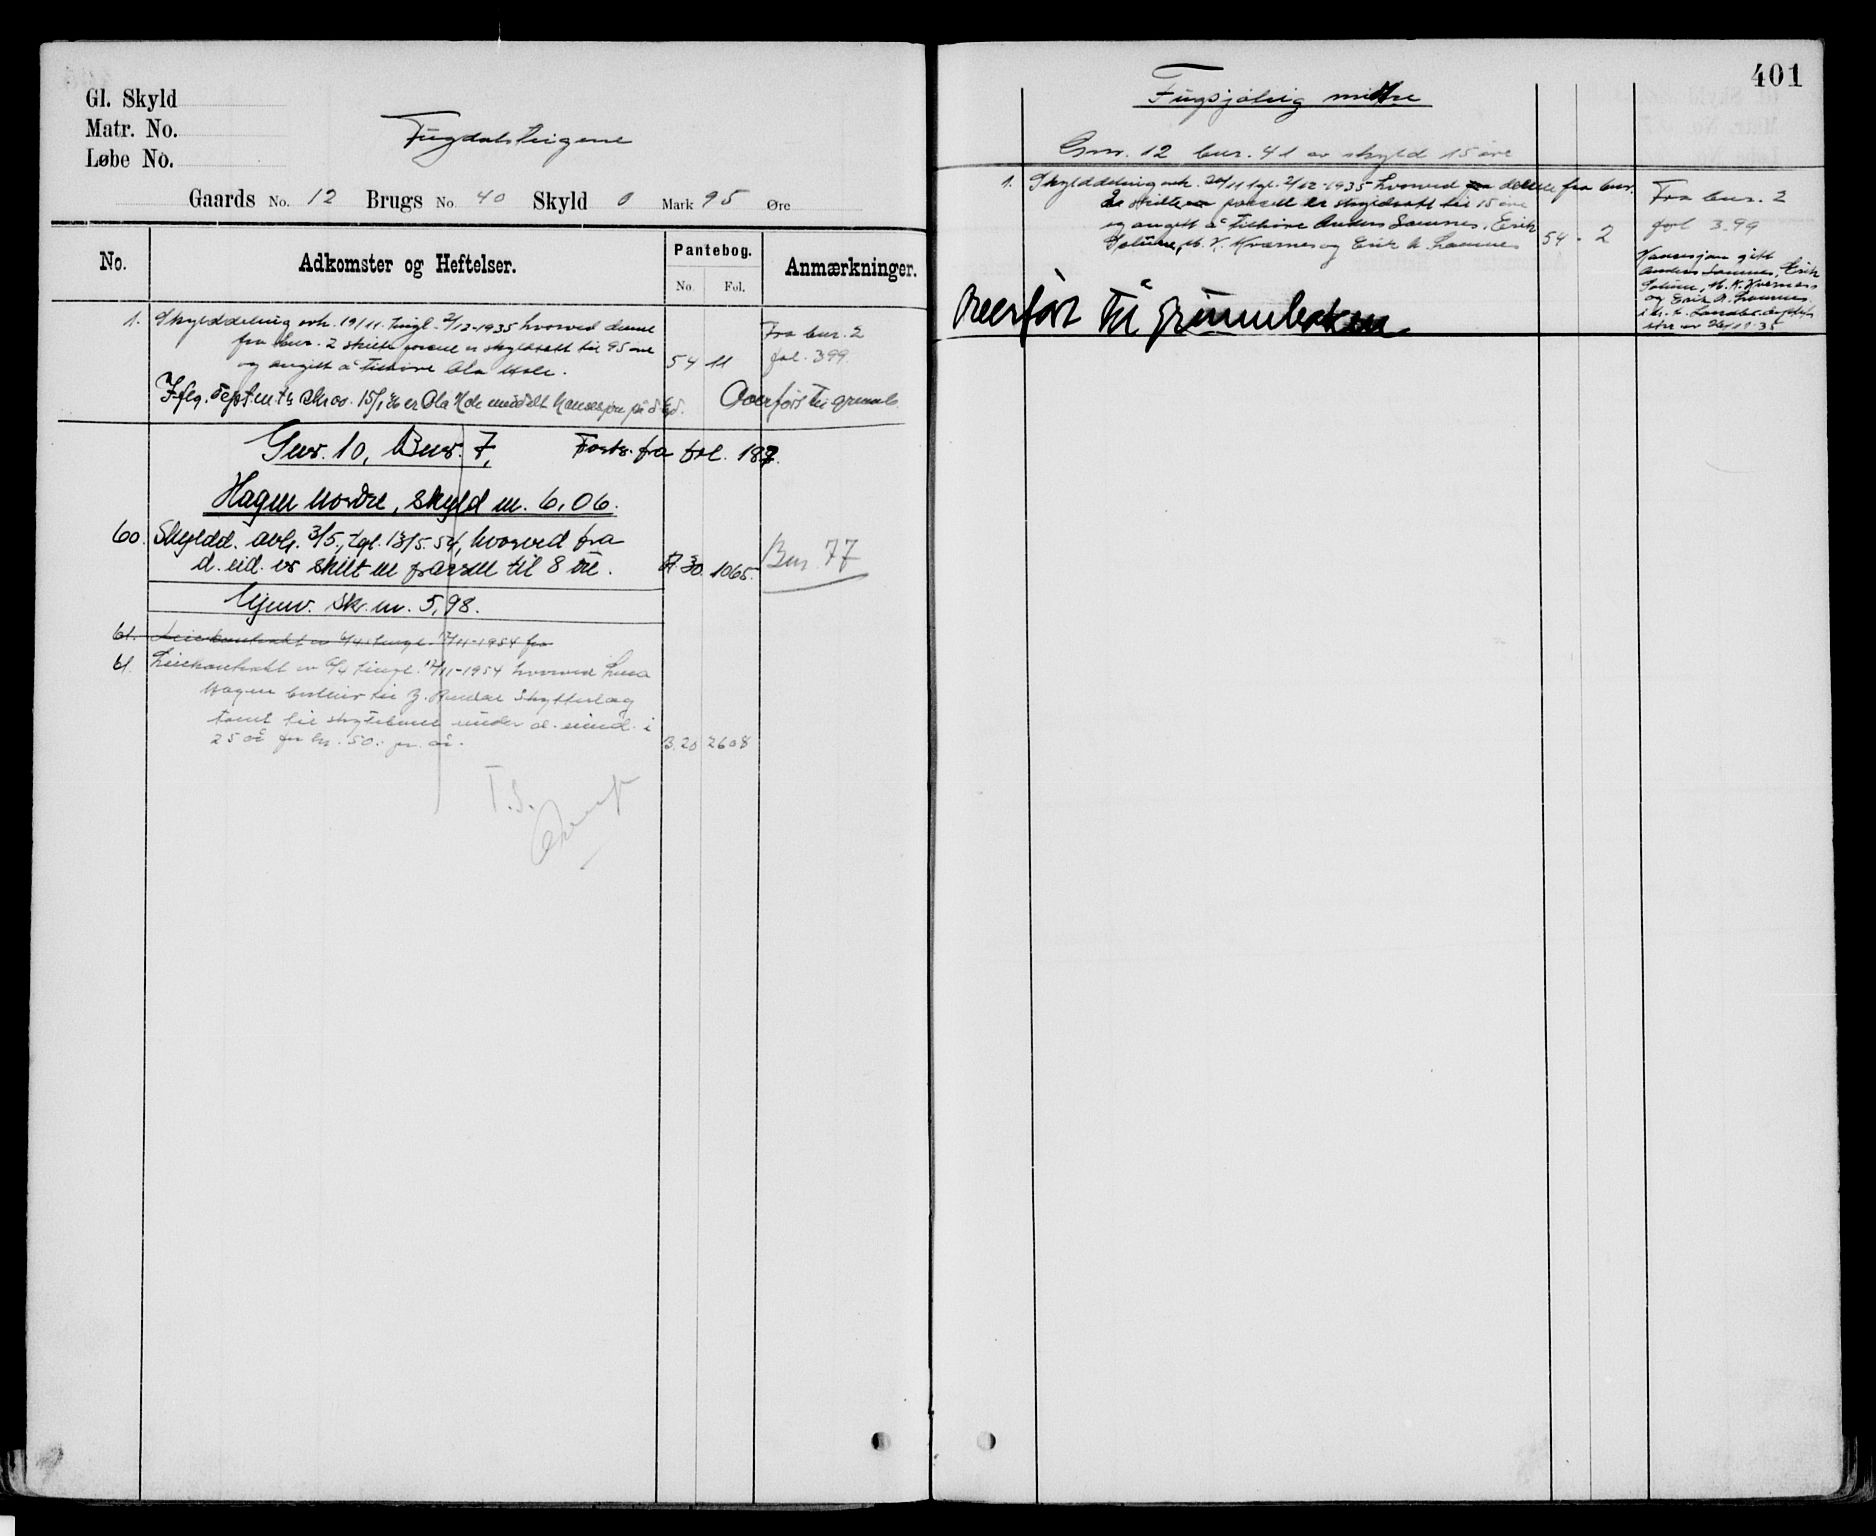 Gl. Skyld
Matr. No.
Løbe No.
Fugdalsteigene
Gaards No. 12 Brugs No. 40 Skyld 0 Mark 95 Øre
No. Adkomster og Heftelser. Pantebog. No. Fol. Anmærkninger.
1. Skylddeling avh. 19/11 tingl. 2/12-1935 hvorved denne
fra bnr. 2 skilte parsel er skyldsatt til 95 øre
og angitt å tilhøre Ola Hole. 54 11
Fra bnr. 2
fol. 399
Iflg. dept.ts skr. av 15/1 36 er Ola Hole meddelt konsesjon på d. eid.
Overført til grunnb.
Gnr. 10, Bnr. 7, Forts. fra fol. 187.
Hagen nordre, skyld m. 6,06.
60. Skyldd. avh. 3/5, tgl. 13/5.54, hvorved fra
d. eid. er skilt en parsell til 8 øre. A 30. 1065.
Bnr 77
Gjenv. sk. m. 5,98.
61. Leiekontrakt av 6/4 tingl. 12/11-1954 fra
61. Leiekontrakt av 6/4 tingl. 12/11-1954 hvorved
Hagen bortleier til Skytterlag
tomt til skytebane under d. eiend. i
25 år for kr. 50.- pr. år. B. 20 2608
T.S.
401
Fugsjølieg mittre
Gnr. 12 bnr. 41 av skyld 15 øre
1. Skylddeling avh. 20/11 tgl. 2/12-1935 hvorved denne fra bnr.
2 skilte parsell er skyldsatt til 15 øre
og angitt å tilhøre Anders Lomnes, Erik
Solime, M. K. Kværnes og Erik A. Lomnes 54 - 2
Fra bnr. 2
fol 399
Konsesjon gitt
Anders Lomnes, Erik
Solime, M. K. Kværnes
og Erik A. Lomnes
Overført til grunnboken